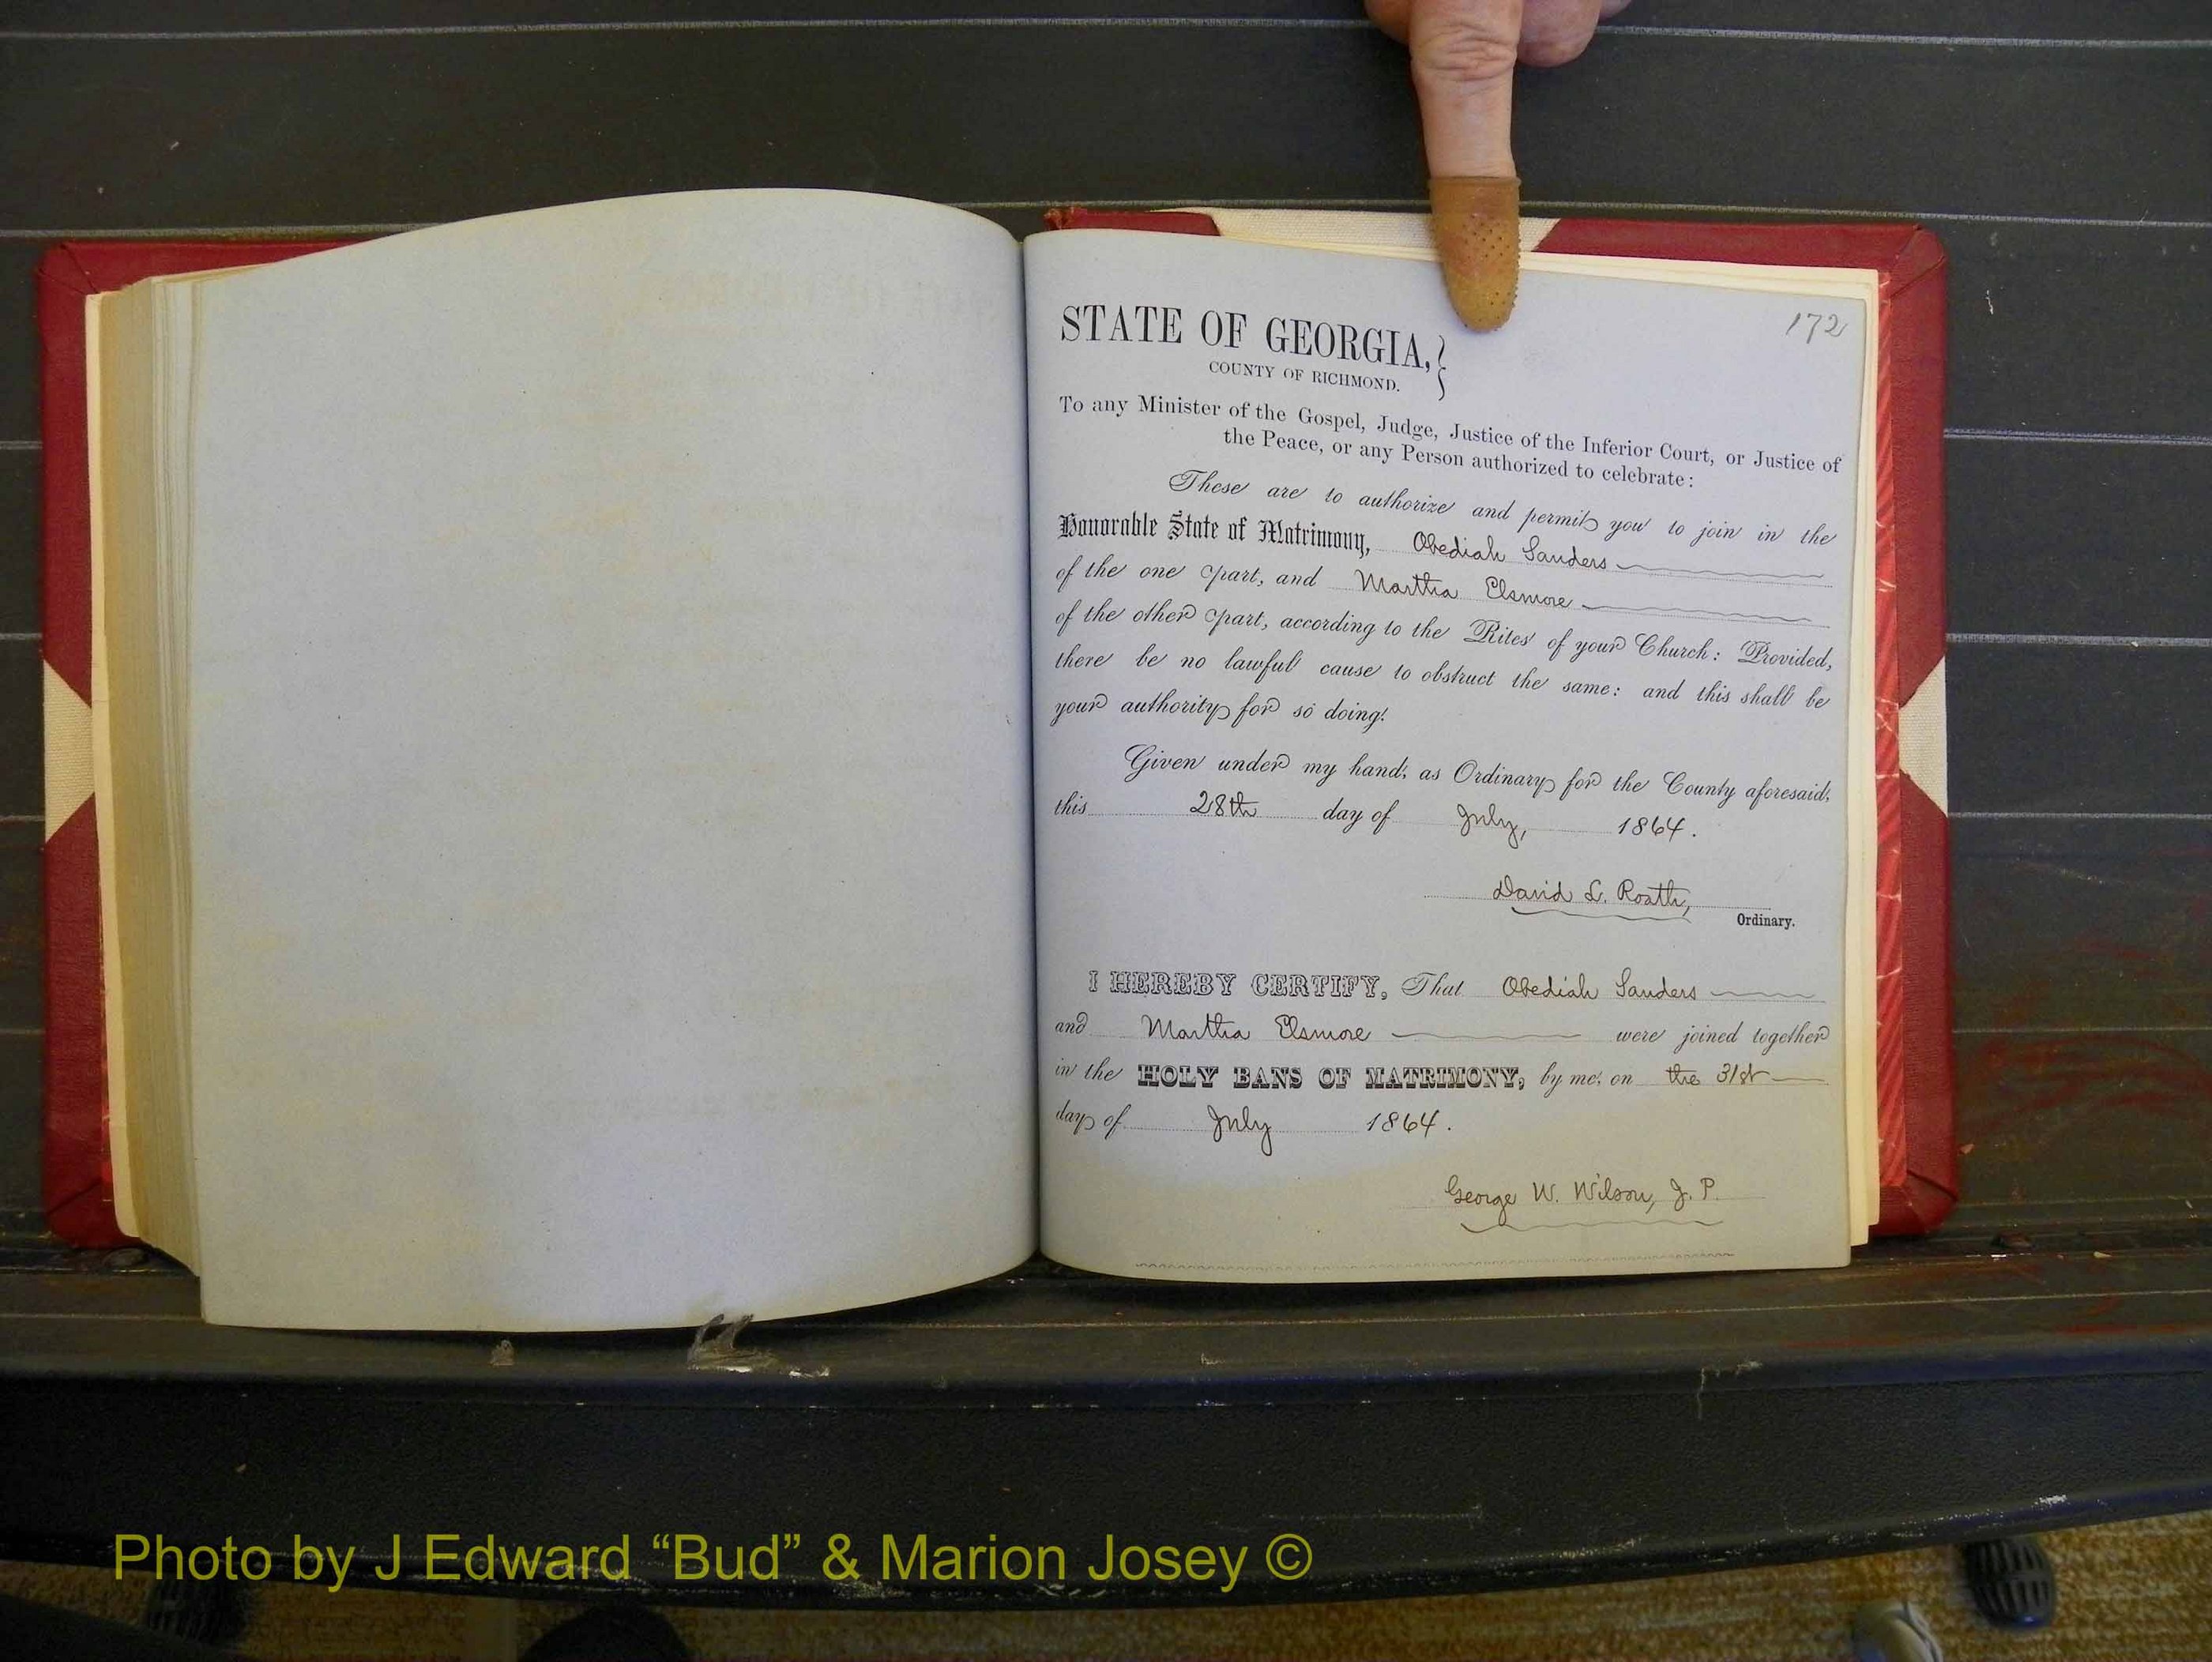 172
STATE OF GEORGIA,}
COUNTY OF RICHMOND.
To any Minister of the Gospel, Judge, Justice of the Inferior Court, or Justice of
the Peace, or any Person authorized to celebrate:
These are to authorize and permit you to join in the
Honorable State of Matrimony, Obediah Sanders
of the one part, and Martha Elsmore
of the other part, according to the Rites of your Church: Provided,
there be no lawful cause to obstruct the same: and this shall be
your authority for so doing.
Given under my hand, as Ordinary for the County aforesaid,
this 28th day of July, 1864.
David L. Roath,
Ordinary.
I HEREBY CERTIFY, That Obediah Sanders
and Martha Elsmore were joined together
in the HOLY BANS OF MATRIMONY, by me, on the 31st
day of July 1864.
George W. Wilson, J. P.
Photo by J Edward “Bud” & Marion Josey ©